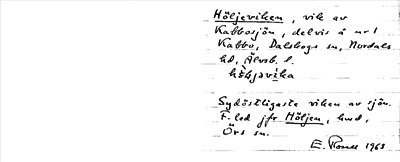 Höljeviken, vik av
Kabbosjön, delvis å nr 1
Kabbo, Dalskogs sn, Nordals
hd, Älvsb. l.
Sydöstligaste viken av sjön.
F. led jfr Höljen, hmd,
Örs sn.
E. 1963